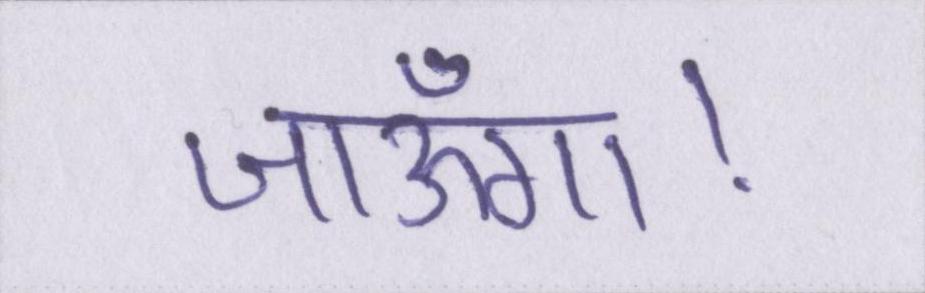 जाऊँगा!